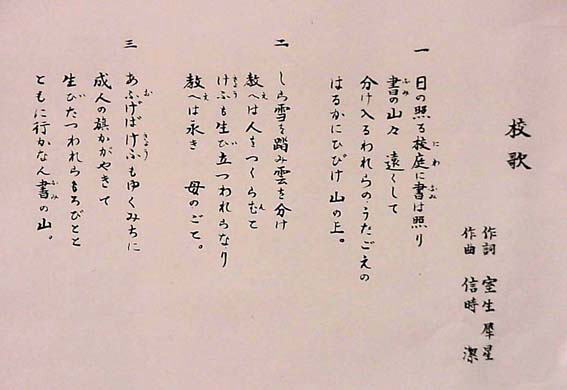 校歌
作詞 室生犀星
作曲 信時潔
一
日の照る校庭に書は照り
書の山々遠くして
分け入るわれらのうたごえの
はるかにひびけ山の上。
二
しら雪を踏み雲を分け
教へは人をつくらむと
けふも生び立つわれらなり
教へは永き 母のごと。
三
あふげばけふもゆくみちに
成人の旗かがやきて
生びたつわれらもろびとと
ともに行かなん書の山。